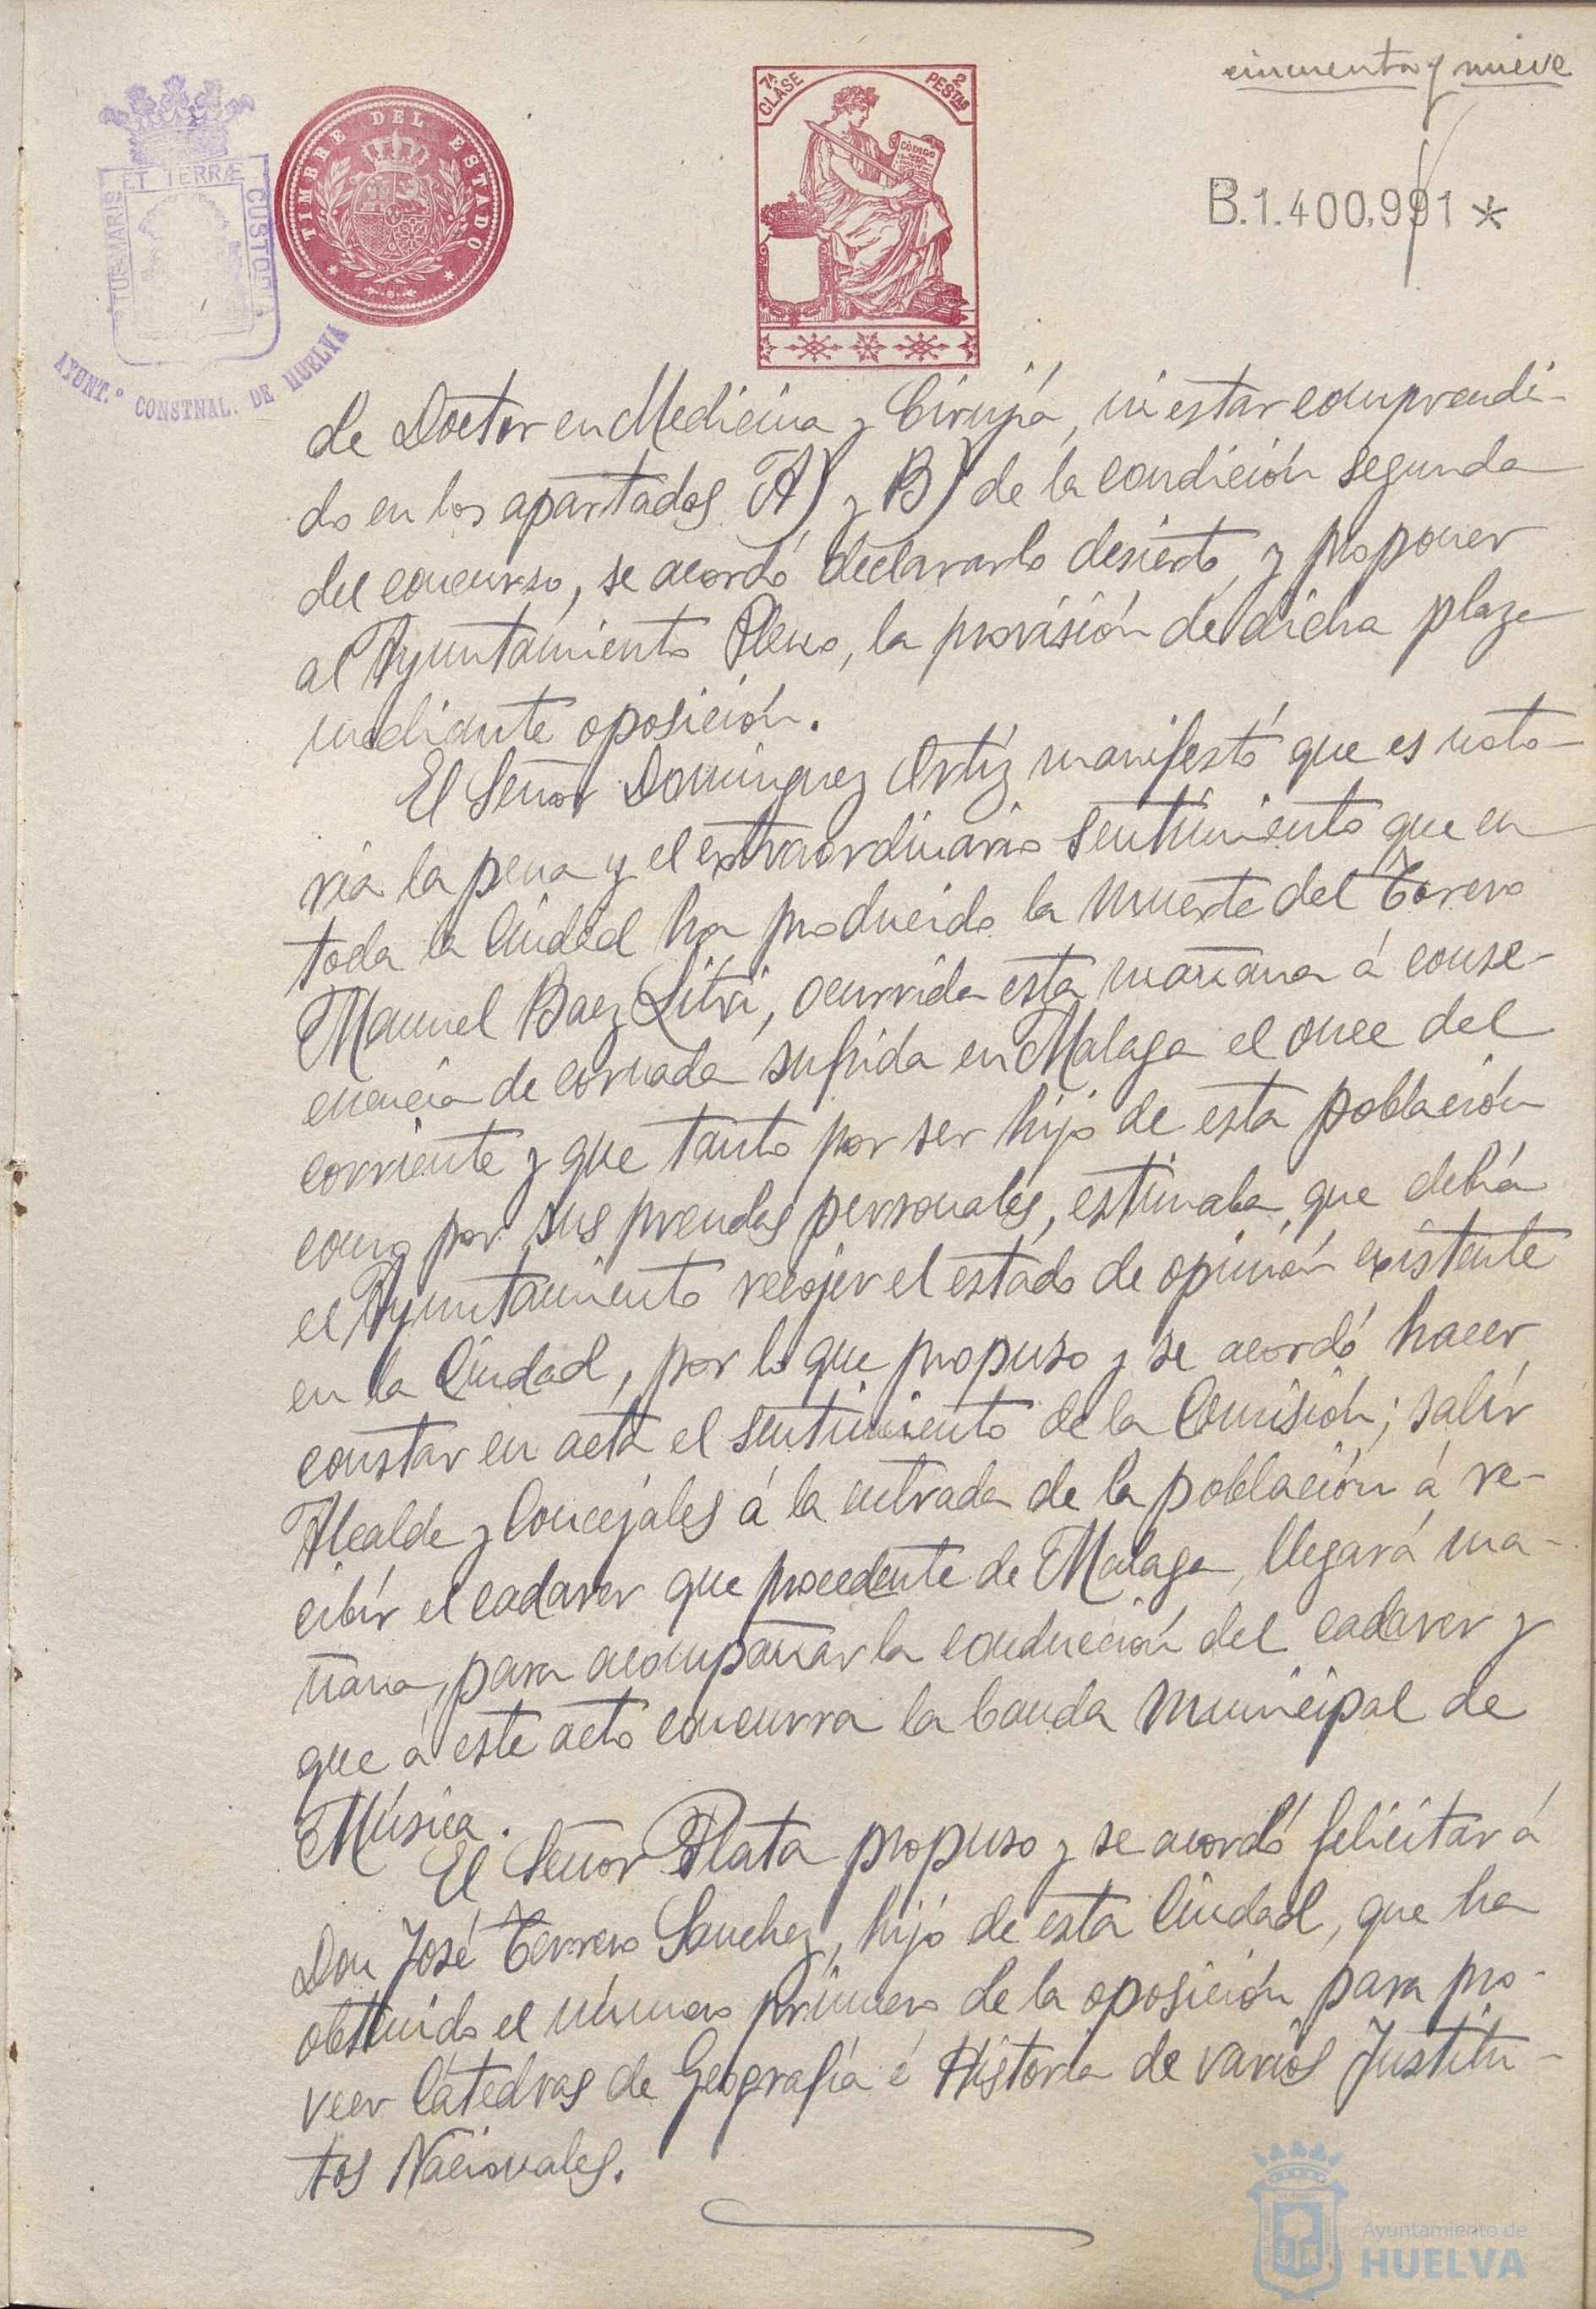 cincuenta y nueve
7ª CLASE
2 PESTAS
CÓDIGO
TIMBRE DEL ESTADO
PORTUS MARIS ET TERRÆ CUSTODIA
AYUNT.º CONSTNAL. DE HUELVA
B.1.400.991 *
de Doctor en Medicina y Cirujía, ni estar comprendi-
do en los apartados A) y B) de la condición segunda
del concurso, se acordó declararlo desierto, y proponer
al Ayuntamiento Pleno, la provisión de dicha plaza
mediante oposición.
El Señor Dominguez Ortíz manifestó que es noto-
ria la pena y el extraordinario sentimiento que en
toda la Ciudad ha producido la muerte del Torero
Manuel Baez Litri, ocurrida esta mañana á conse-
cuencia de cornada sufrida en Malaga el once del
corriente y que tanto por ser hijo de esta población
como por sus prendas personales, estimaba que debía
el Ayuntamiento recojer el estado de opinión existente
en la Ciudad, por lo que propuso y se acordó hacer
constar en acta el sentimiento de la Comisión; salír
Alcalde y Concejales á la entrada de la población á re-
cibír el cadaver que procedente de Malaga, llegará ma-
ñana, para acompañar la conducción del cadaver y
que á este acto concurra la banda Municipal de
Música.
El Señor Plata propuso y se acordó felicitar á
Don José Terrero Sanchez, hijo de esta Ciudad, que ha
obtenido el número primero de la oposición para pro-
veer Cátedras de Geografía é Historia de varios Institu-
tos Nacionales.
Ayuntamiento de
HUELVA